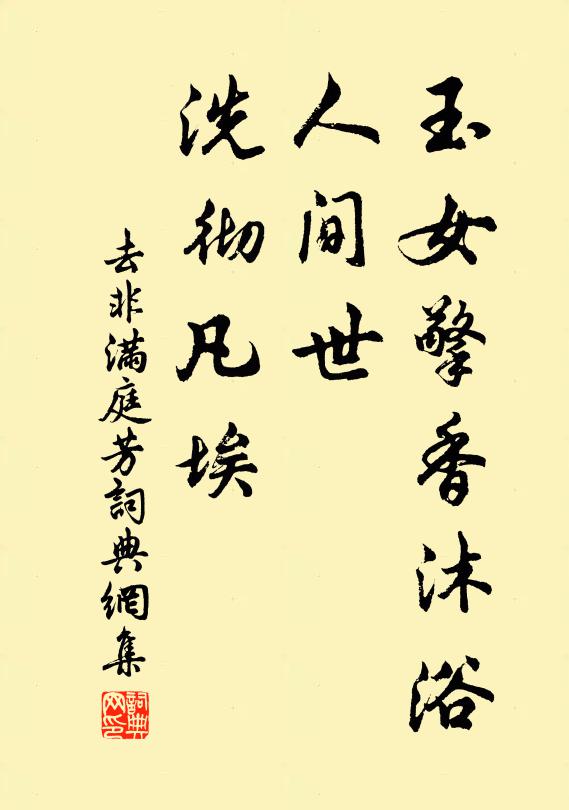 玉女擎香沐浴
人间世
洗彻凡埃
去非满庭芳詞典網集
詞典网印